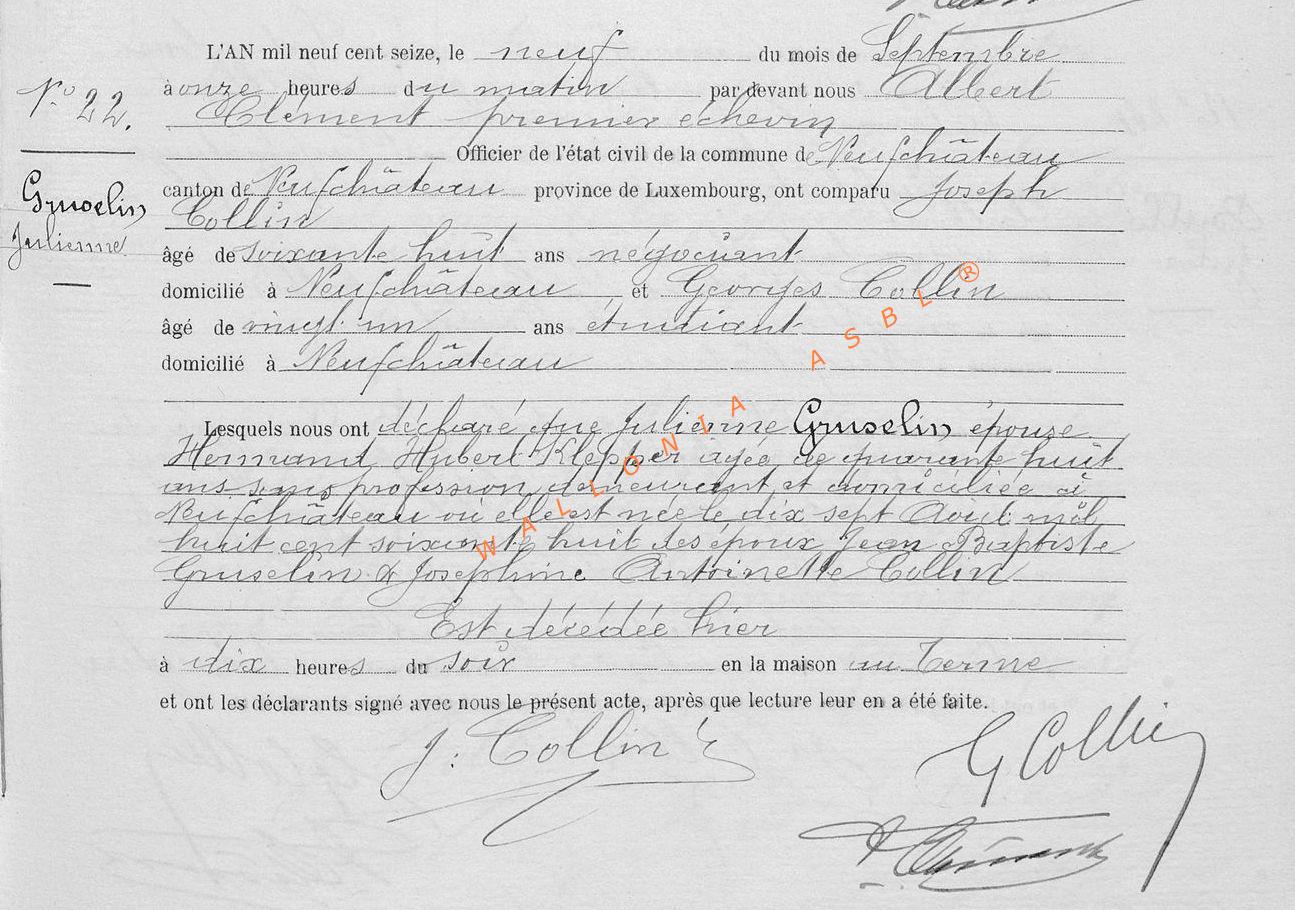 L'AN mil neuf cent seize, le neuf du mois de Septembre
N° 22.
à onze heures du matin par devant nous Albert
Clément premier échevin
Officier de l'état civil de la commune de Neufchâteau
Gruselin
Julienne
canton de Neufchâteau province de Luxembourg, ont comparu Joseph
Collin
âgé de soixante huit ans négociant
domicilié à Neufchâteau et Georges Collin
âgé de vingt un ans étudiant
domicilié à Neufchâteau
Lesquels nous ont déclaré que Julienne Gruselin épouse
Hermand Hubert Klepper âgée de quarante huit
ans sans profession demeurant et domiciliée à
Neufchâteau où elle est née le dix sept Avril mil
huit cent soixante huit des époux Jean Baptiste
Gruselin & Joséphine Antoinette Collin
Est décédée hier
à dix heures du soir en la maison au Terme
et ont les déclarants signé avec nous le présent acte, après que lecture leur en a été faite.
J. Collin
G Collin
A Clément
WALLONIA ASBL ®